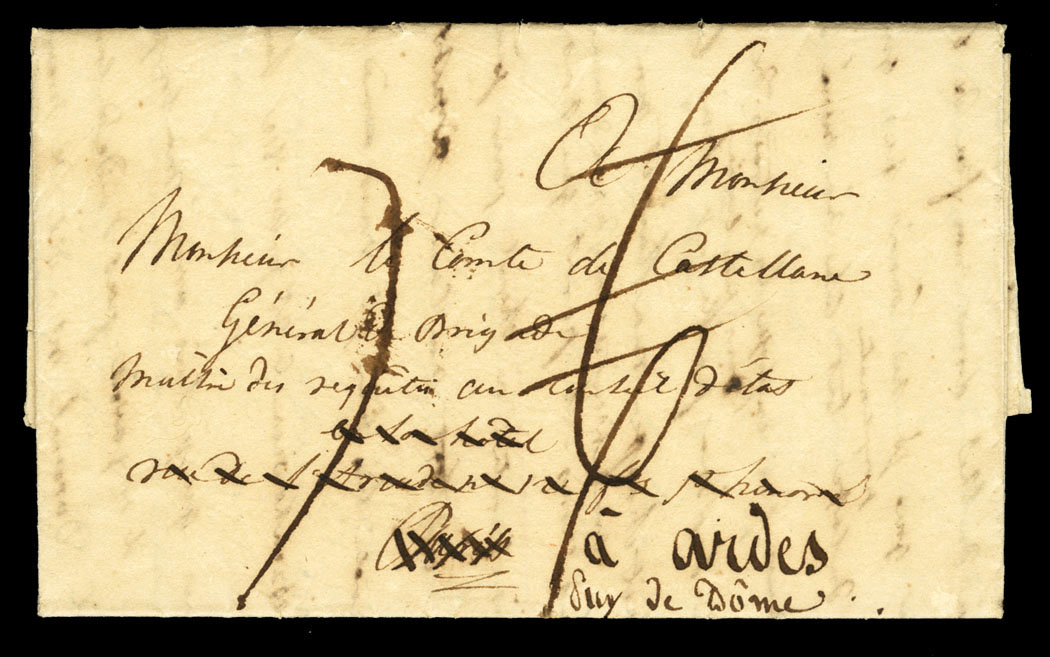 A Monsieur
Monsieur le Comte de Castellane
Général de Brigade
Maître des requêtes au Conseil d'état
en son hôtel
rue de fg st honoré
Paris à ardes
Puy de Dôme